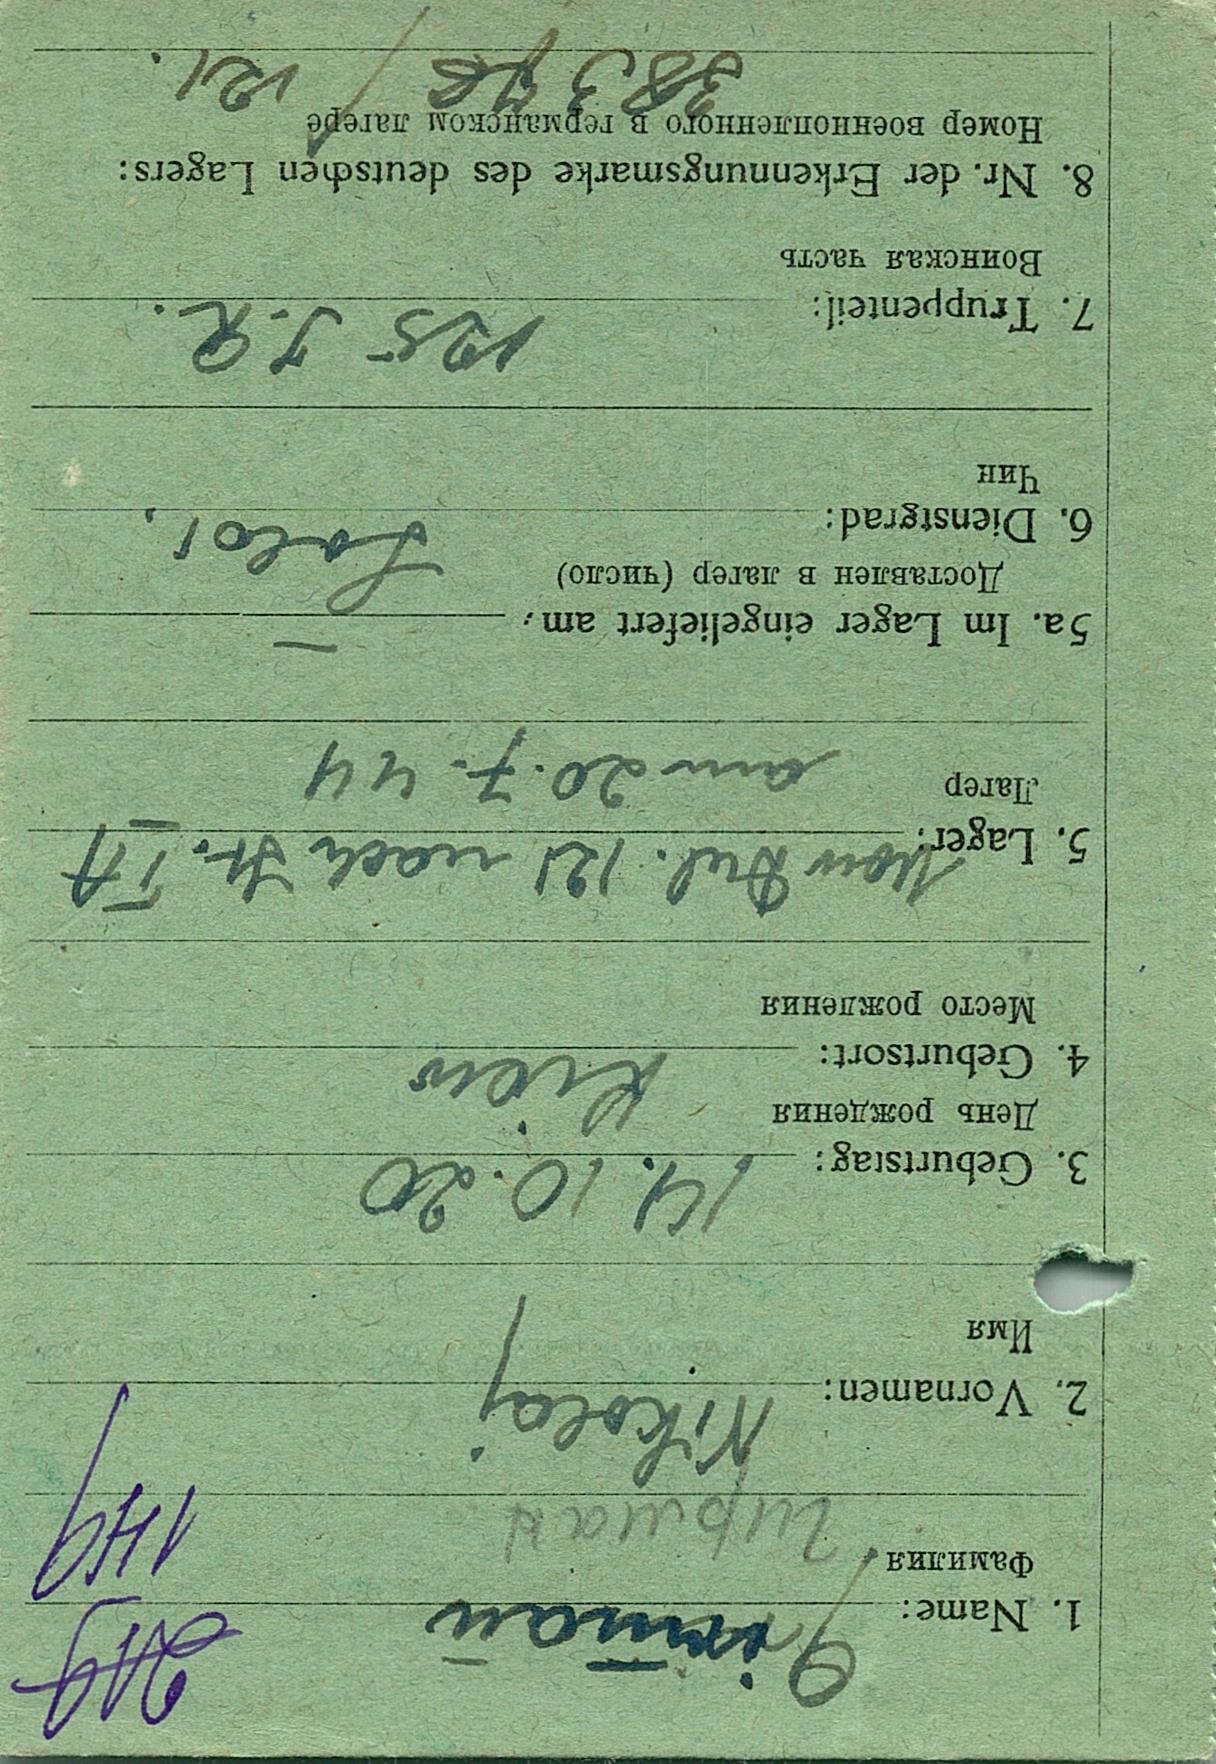 1. Name: Girman
Фамилия Гирман
2. Vornamen: Nikolaj
Имя
3. Geburtstag: 14.10.20
День рождения
4. Geburtsort: Kiew
Место рождения
5. Lager: Dul. 121 nach St. IA
Лагер am 20.7.44
5a. Im Lager eingeliefert am: —
Доставлен в лагер (число)
6. Dienstgrad:
Чин
7. Truppenteil: 125 J.R.
Воинская часть
8. Nr. der Erkennungsmarke des deutschen Lagers:
Номер военнопленного в германском лагере
121